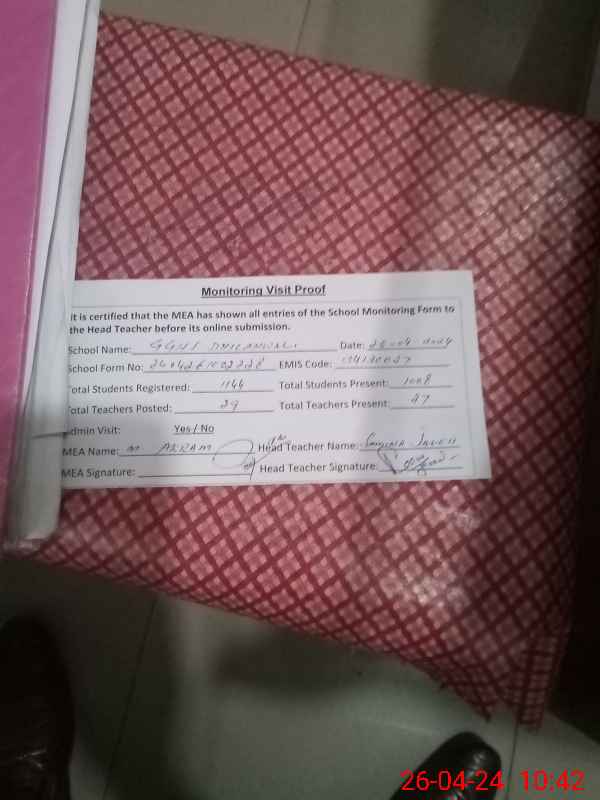 Monitoring Visit Proof
It is certified that the MEA has shown all entries of the School Monitoring Form to
the Head Teacher before its online submission.
School Name: GGHS Date:
School Form No: EMIS Code:
Total Students Registered: 1144 Total Students Present: 1008
Total Teachers Posted: 29 Total Teachers Present: 27
Admin Visit: Yes / No
MEA Name: M AKRAM Head Teacher Name:
MEA Signature: Head Teacher Signature:
26-04-24 10:42